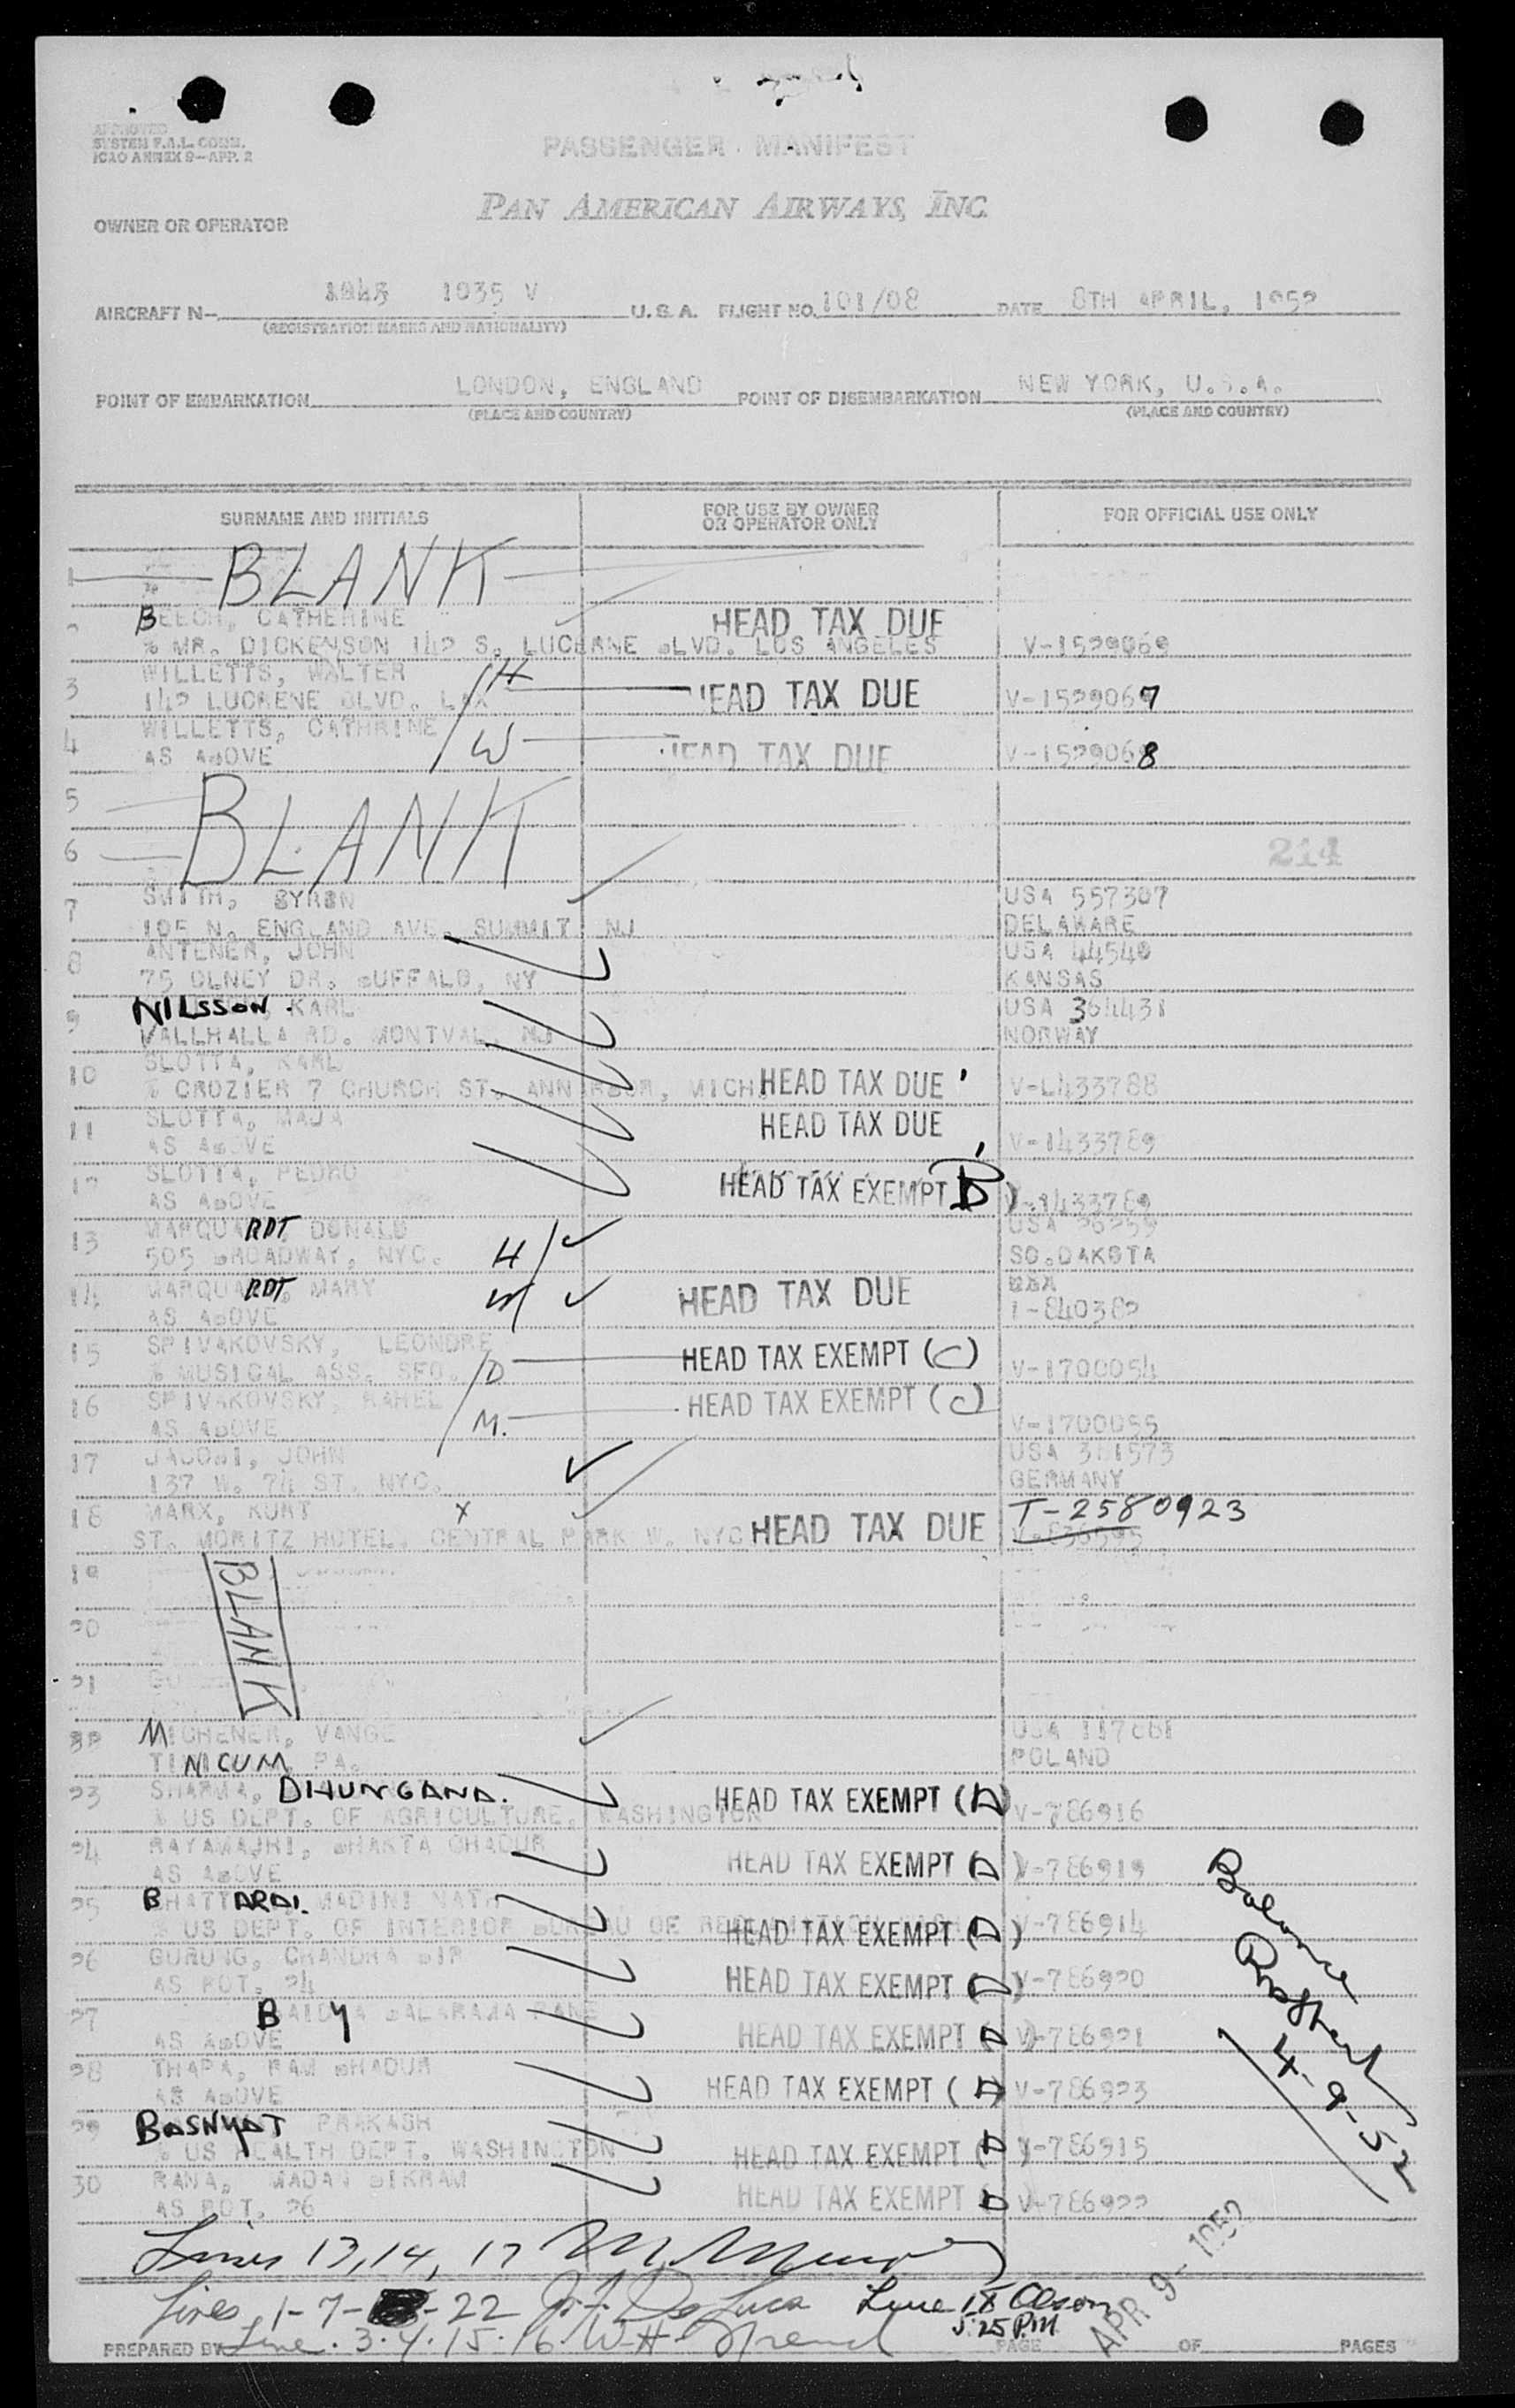 APPROVED
SYSTEM F.A.L. COMM.
ICAO ANNEX 9—APP. 2
PASSENGER MANIFEST
PAN AMERICAN AIRWAYS, INC.
OWNER OR OPERATOR
AIRCRAFT N- 1035 V U.S.A. FLIGHT NO. 101/08 DATE 8TH APRIL, 1952
(REGISTRATION MARKS AND NATIONALITY)
POINT OF EMBARKATION LONDON, ENGLAND POINT OF DISEMBARKATION NEW YORK, U.S.A.
(PLACE AND COUNTRY) (PLACE AND COUNTRY)
SURNAME AND INITIALS FOR USE BY OWNER OR OPERATOR ONLY FOR OFFICIAL USE ONLY
1 BLANK
BEECH, CATHERINE HEAD TAX DUE
% MR. DICKENSON 142 S. LUCERNE BLVD. LOS ANGELES V-1529069
3 WILLETTS, WALTER H
142 LUCRENE BLVD. LAX HEAD TAX DUE V-1529067
4 WILLETTS, CATHRINE W
AS ABOVE HEAD TAX DUE V-1529068
5 BLANK
6 214
7 SMITH, BYRON USA 557307
105 N. ENGLAND AVE. SUMMIT NJ DELAWARE
8 ANTENEN, JOHN USA 44540
75 OLNEY DR. BUFFALO, NY KANSAS
9 NILSSON. KARL USA 364431
VALLHALLA RD. MONTVAL, NJ NORWAY
10 SLOTTA, KARL
% CROZIER 7 CHURCH ST. ANN ARBOR, MICH. HEAD TAX DUE V-1433788
11 SLOTTA, MAJA HEAD TAX DUE
AS ABOVE V-1433789
12 SLOTTA, PEDRO HEAD TAX EXEMPT B
AS ABOVE V-1433789
13 MARQUARDT DONALD USA 26259
505 BROADWAY, NYC. H SO.DAKOTA
14 MARQUARDT, MARY W HEAD TAX DUE
AS ABOVE I-840382
15 SPIVAKOVSKY, LEONDRE HEAD TAX EXEMPT (C)
% MUSICAL ASS. SFO. D V-1700054
16 SPIVAKOVSKY, RAHEL HEAD TAX EXEMPT (C)
AS ABOVE M. V-1700055
17 JACOBI, JOHN USA 311573
137 W. 74 ST. NYC. GERMANY
18 MARX, KURT X T-2580923
ST. MORITZ HOTEL, CENTRAL PARK W. NYC HEAD TAX DUE
19 BLANK
20
21
22 MICHENER, VANGE USA
TINICUM PA. POLAND
23 SHARMA, DHUNGANA. HEAD TAX EXEMPT (D)
% US DEPT. OF AGRICULTURE, WASHINGTON V-786916
24 RAYAMAJHI, BHAKTA BHADUR HEAD TAX EXEMPT (D)
AS ABOVE V-786919
25 BHATTARAI. MADINI NATH
% US DEPT. OF INTERIOR BUREAU OF HEAD TAX EXEMPT (D) V-786914
26 GURUNG, CHANDRA BIR HEAD TAX EXEMPT (D)
AS ROT. 24 V-786920
27 BAIDYA BALARAMA
AS ABOVE HEAD TAX EXEMPT (D) V-786921
28 THAPA, RAM BHADUR
AS ABOVE HEAD TAX EXEMPT (D) V-786923
29 BASNYAT PRAKASH
% US HEALTH DEPT. WASHINGTON HEAD TAX EXEMPT (D) V-786915
30 RANA, MADAN BIKRAM
AS ROT. 26 HEAD TAX EXEMPT D V-786922
4-9-52
Lines 13, 14, 17
Lines 1-7- -22 J. F. De Luca Line 18 Olson
5:25 P.M.
APR 9-1952
PREPARED BY Line. 3.4.15.16. W.H. PAGE OF PAGES